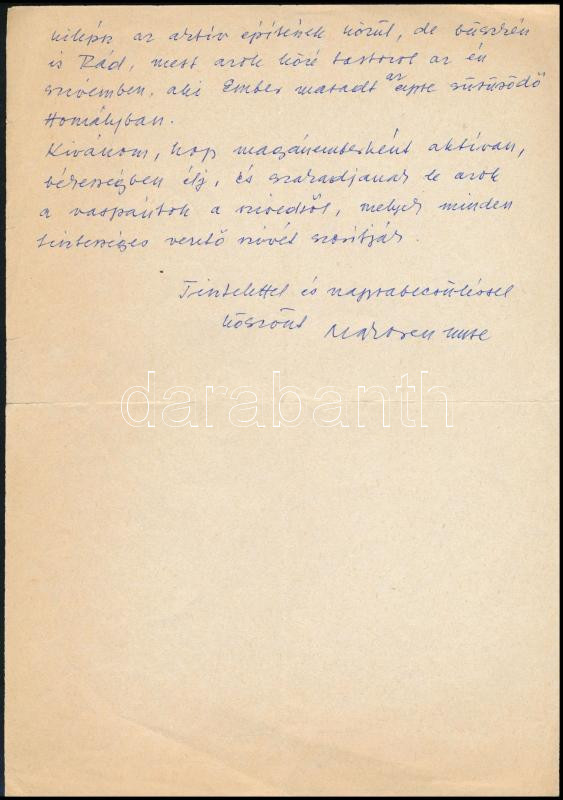 kilépsz az aktív építének közül, de büszkén
is Rád, mert azok közé tartozol az én
szívemben, aki Ember maradt az egyre sűrűsödő
Homályban.
Kívánom, hogy magánemberként aktívan,
békességben élj, és szakadjanak le azok
a vaspántok a szívedről, melyek minden
tisztességes verető szívét szorítják.
Tisztelettel és nagyrabecsüléssel
köszönt Makovecz Imre
darabanth